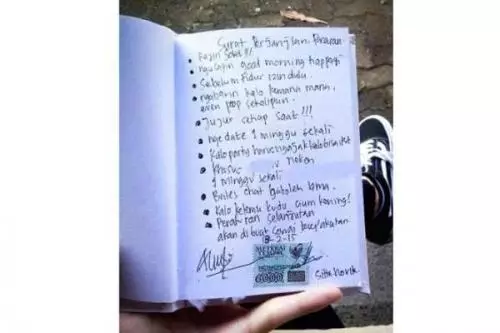 Surat Perjanjian Pacaran
• Rajin sholat !!!
• ngucapin good morning tiap pagi
• Sebelum tidur izin dulu.
• ngabarin kalo kemana mana,
even poop sekalipun.
• Jujur setiap saat !!!
• nge date 1 minggu sekali
• Kalo party harus ngajak kalo bisa
•
1 minggu sekali
• Bales chat gaboleh lama.
• Kalo ketemu kudu cium kening!
• Peraturan selanjutnya
akan dibuat sesuai kesepakatan
8-2-15
METERAI
TEMPEL
6000